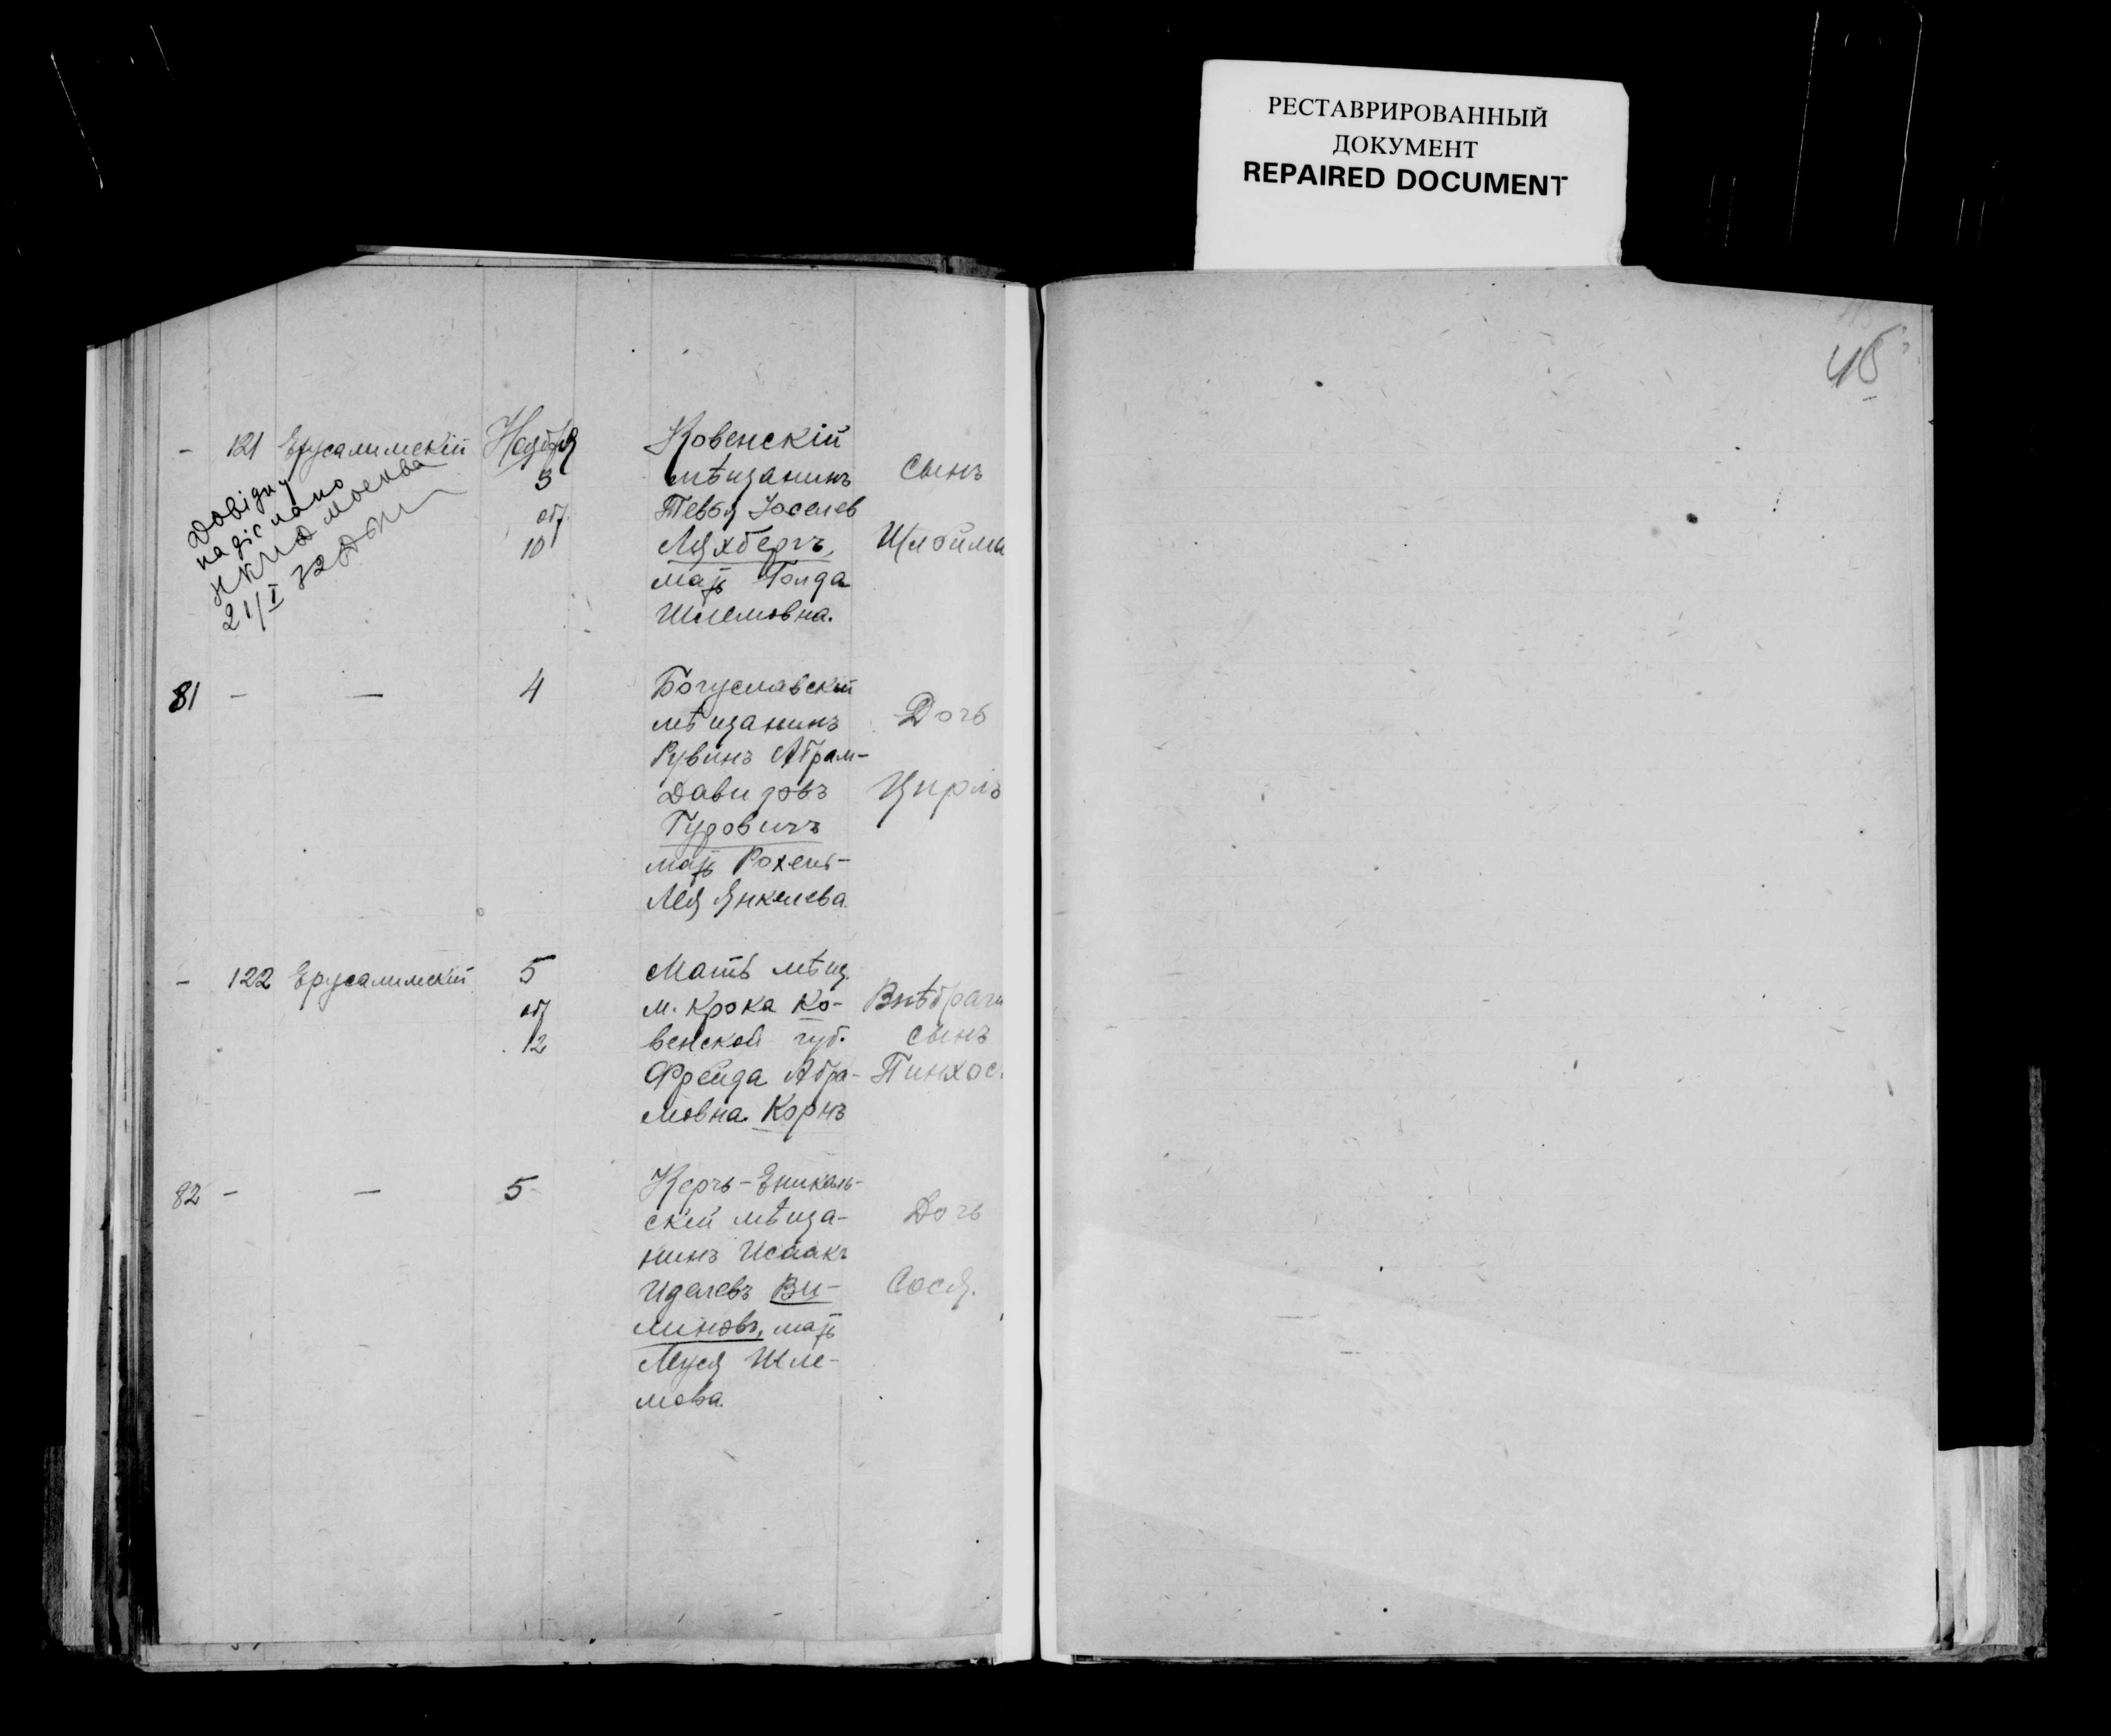 РЕСТАВРИРОВАННЫЙ
ДОКУМЕНТ
REPAIRED DOCUMENT
45
- 121 Ерусалимскій Ноября
3
обр.
10
Довідку
надіслано
Москва
21/I
Ковенскій
мѣщанинъ
Тевья Іоселев
Ляхбергъ,
мать Голда
Шлемовна.
сынъ
Шлойма
81 - — 4
Богуславскій
мѣщанинъ
Рувинъ Абрам-
Давидовъ
Гуровичъ
мать Рохель-
Лея Янкелева.
Дочь
Цирль
- 122 Ерусалимскій 5
обр
12
Мать мѣщ.
м. Крока Ко-
венской губ.
Фрейда Абра-
мовна Корнъ
Внѣбрачн
сынъ
Пинхос
82 - — 5
Керчь-Еникаль-
скій мѣща-
нинъ Исаакъ
Иделевъ Ви-
линовъ, мать
Муся Шле-
мова.
Дочь
Сося.